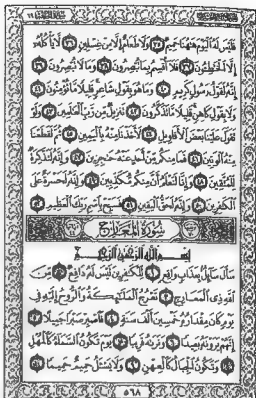 فَلَيْسَ لَهُ الْيَوْمَ هَاهُنَا حَمِيمٌ ٣٥ وَلَا طَعَامٌ إِلَّا مِنْ غِسْلِينٍ ٣٦ لَا يَأْكُلُهُ
إِلَّا الْخَاطِئُونَ ٣٧ فَلَا أُقْسِمُ بِمَا تُبْصِرُونَ ٣٨ وَمَا لَا تُبْصِرُونَ ٣٩
إِنَّهُ لَقَوْلُ رَسُولٍ كَرِيمٍ ٤٠ وَمَا هُوَ بِقَوْلِ شَاعِرٍ قَلِيلًا مَا تُؤْمِنُونَ ٤١
وَلَا بِقَوْلِ كَاهِنٍ قَلِيلًا مَا تَذَكَّرُونَ ٤٢ تَنْزِيلٌ مِنْ رَبِّ الْعَالَمِينَ ٤٣ وَلَوْ
تَقَوَّلَ عَلَيْنَا بَعْضَ الْأَقَاوِيلِ ٤٤ لَأَخَذْنَا مِنْهُ بِالْيَمِينِ ٤٥ ثُمَّ لَقَطَعْنَا
مِنْهُ الْوَتِينَ ٤٦ فَمَا مِنْكُمْ مِنْ أَحَدٍ عَنْهُ حَاجِزِينَ ٤٧ وَإِنَّهُ لَتَذْكِرَةٌ
لِلْمُتَّقِينَ ٤٨ وَإِنَّا لَنَعْلَمُ أَنَّ مِنْكُمْ مُكَذِّبِينَ ٤٩ وَإِنَّهُ لَحَسْرَةٌ عَلَى
الْكَافِرِينَ ٥٠ وَإِنَّهُ لَحَقُّ الْيَقِينِ ٥١ فَسَبِّحْ بِاسْمِ رَبِّكَ الْعَظِيمِ ٥٢
سُورَةُ الْمَعَارِجِ
بِسْمِ اللَّهِ الرَّحْمَٰنِ الرَّحِيمِ
سَأَلَ سَائِلٌ بِعَذَابٍ وَاقِعٍ ١ لِلْكَافِرِينَ لَيْسَ لَهُ دَافِعٌ ٢ مِنَ
اللَّهِ ذِي الْمَعَارِجِ ٣ تَعْرُجُ الْمَلَائِكَةُ وَالرُّوحُ إِلَيْهِ فِي
يَوْمٍ كَانَ مِقْدَارُهُ خَمْسِينَ أَلْفَ سَنَةٍ ٤ فَاصْبِرْ صَبْرًا جَمِيلًا ٥
إِنَّهُمْ يَرَوْنَهُ بَعِيدًا ٦ وَنَرَاهُ قَرِيبًا ٧ يَوْمَ تَكُونُ السَّمَاءُ كَالْمُهْلِ
٨ وَتَكُونُ الْجِبَالُ كَالْعِهْنِ ٩ وَلَا يَسْأَلُ حَمِيمٌ حَمِيمًا ١٠
٥٦٨